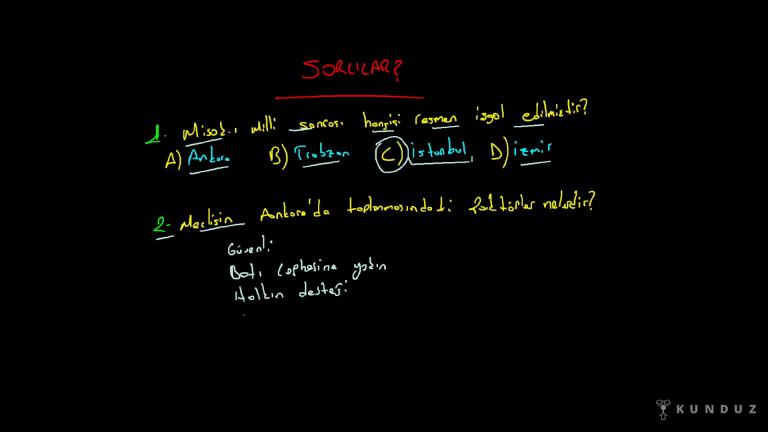 SORULAR?
1- Misak-ı milli sonrası hangisi resmen işgal edilmiştir?
A) Ankara B) Trabzon C) İstanbul D) İzmir
2- Meclisin Ankara'da toplanmasındaki faktörler nelerdir?
Güvenli
Batı Cephesine yakın
Halkın desteği
KUNDUZ